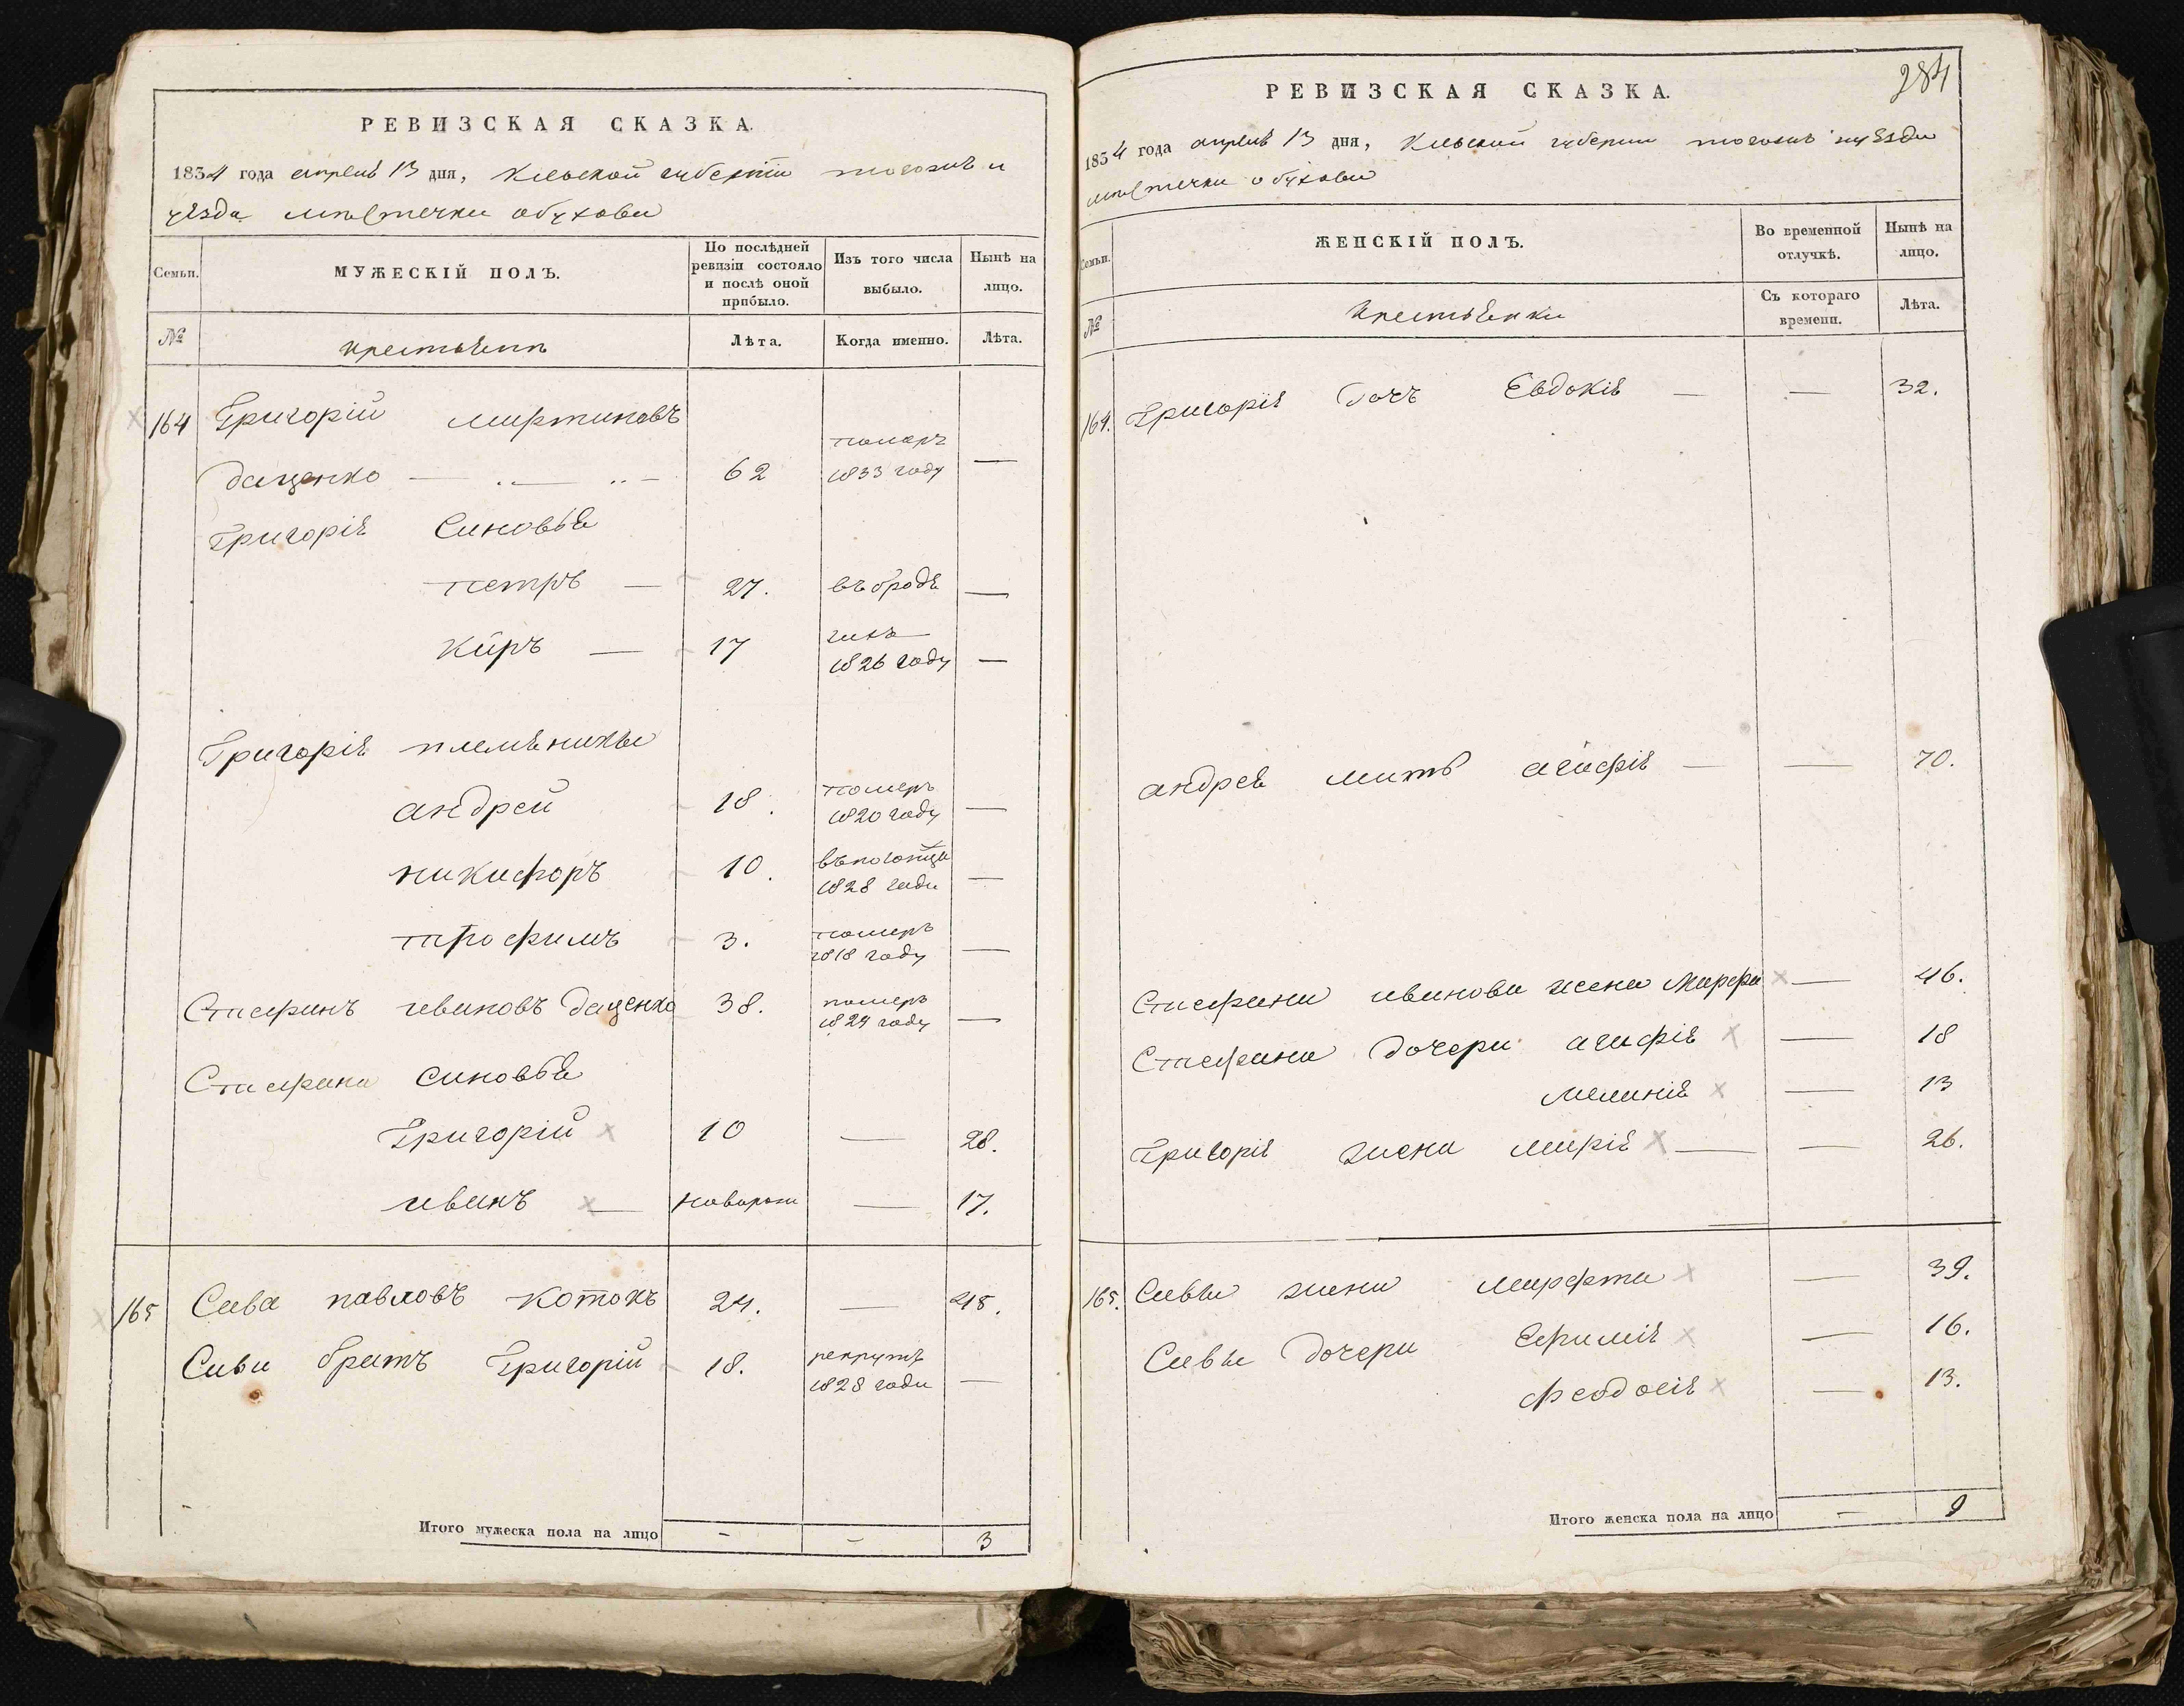 РЕВИЗСКАЯ СКАЗКА.
1834 года апреля 13 дня, Киевской губернти тогожъ и
уезда местечка обухова
Семьи.
МУЖЕСКІЙ ПОЛЪ.
По послѣдней ревизіи состояло и послѣ оной прибыло.
Изъ того числа выбыло.
Нынѣ на лицо.
№
крестьянъ
Лѣта.
Когда именно.
Лѣта.
164 Григорій мартиновъ
померъ
даценко — 62 1833 году —
Григорія Синовья
петръ — 27. въ бродѣ —
гихъ
Киръ — 17 1826 году —
Григорія племѣникы
андрей 18. померъ 1820 году —
никифоръ 10. 1828 года —
трофимъ 3. померъ 1818 году —
Стефанъ ивановъ даценко 38. померъ 1824 году —
Стефана синовья
Григорій 10 — 28.
иванъ — наворож — 17.
165 Сава павловъ котокъ 24. — 45.
Сави братъ Григорій 18. рекрутъ 1828 года —
Итого мужеска пола на лицо - - 3
284
РЕВИЗСКАЯ СКАЗКА.
1834 года апреля 13 дня, Киевской губернии тогожъ уезда
местечка обухова
Семьи.
ЖЕНСКІЙ ПОЛЪ.
Во временной отлучкѣ.
Нынѣ на лицо.
№
крестьянки
Съ котораго времени.
Лѣта.
164. Григорія дочъ Евдокія — — 32.
андрея мать агафія — — 70.
Стефана иванова жена Марфа — 46.
Стефана дочери агафія — 18
меланія — 13
Григорія жена марія — — 26.
165. Савы жена марфта — 39.
Савы дочери Ефимія — 16.
феодосія — 13.
Итого женска пола на лицо — 9